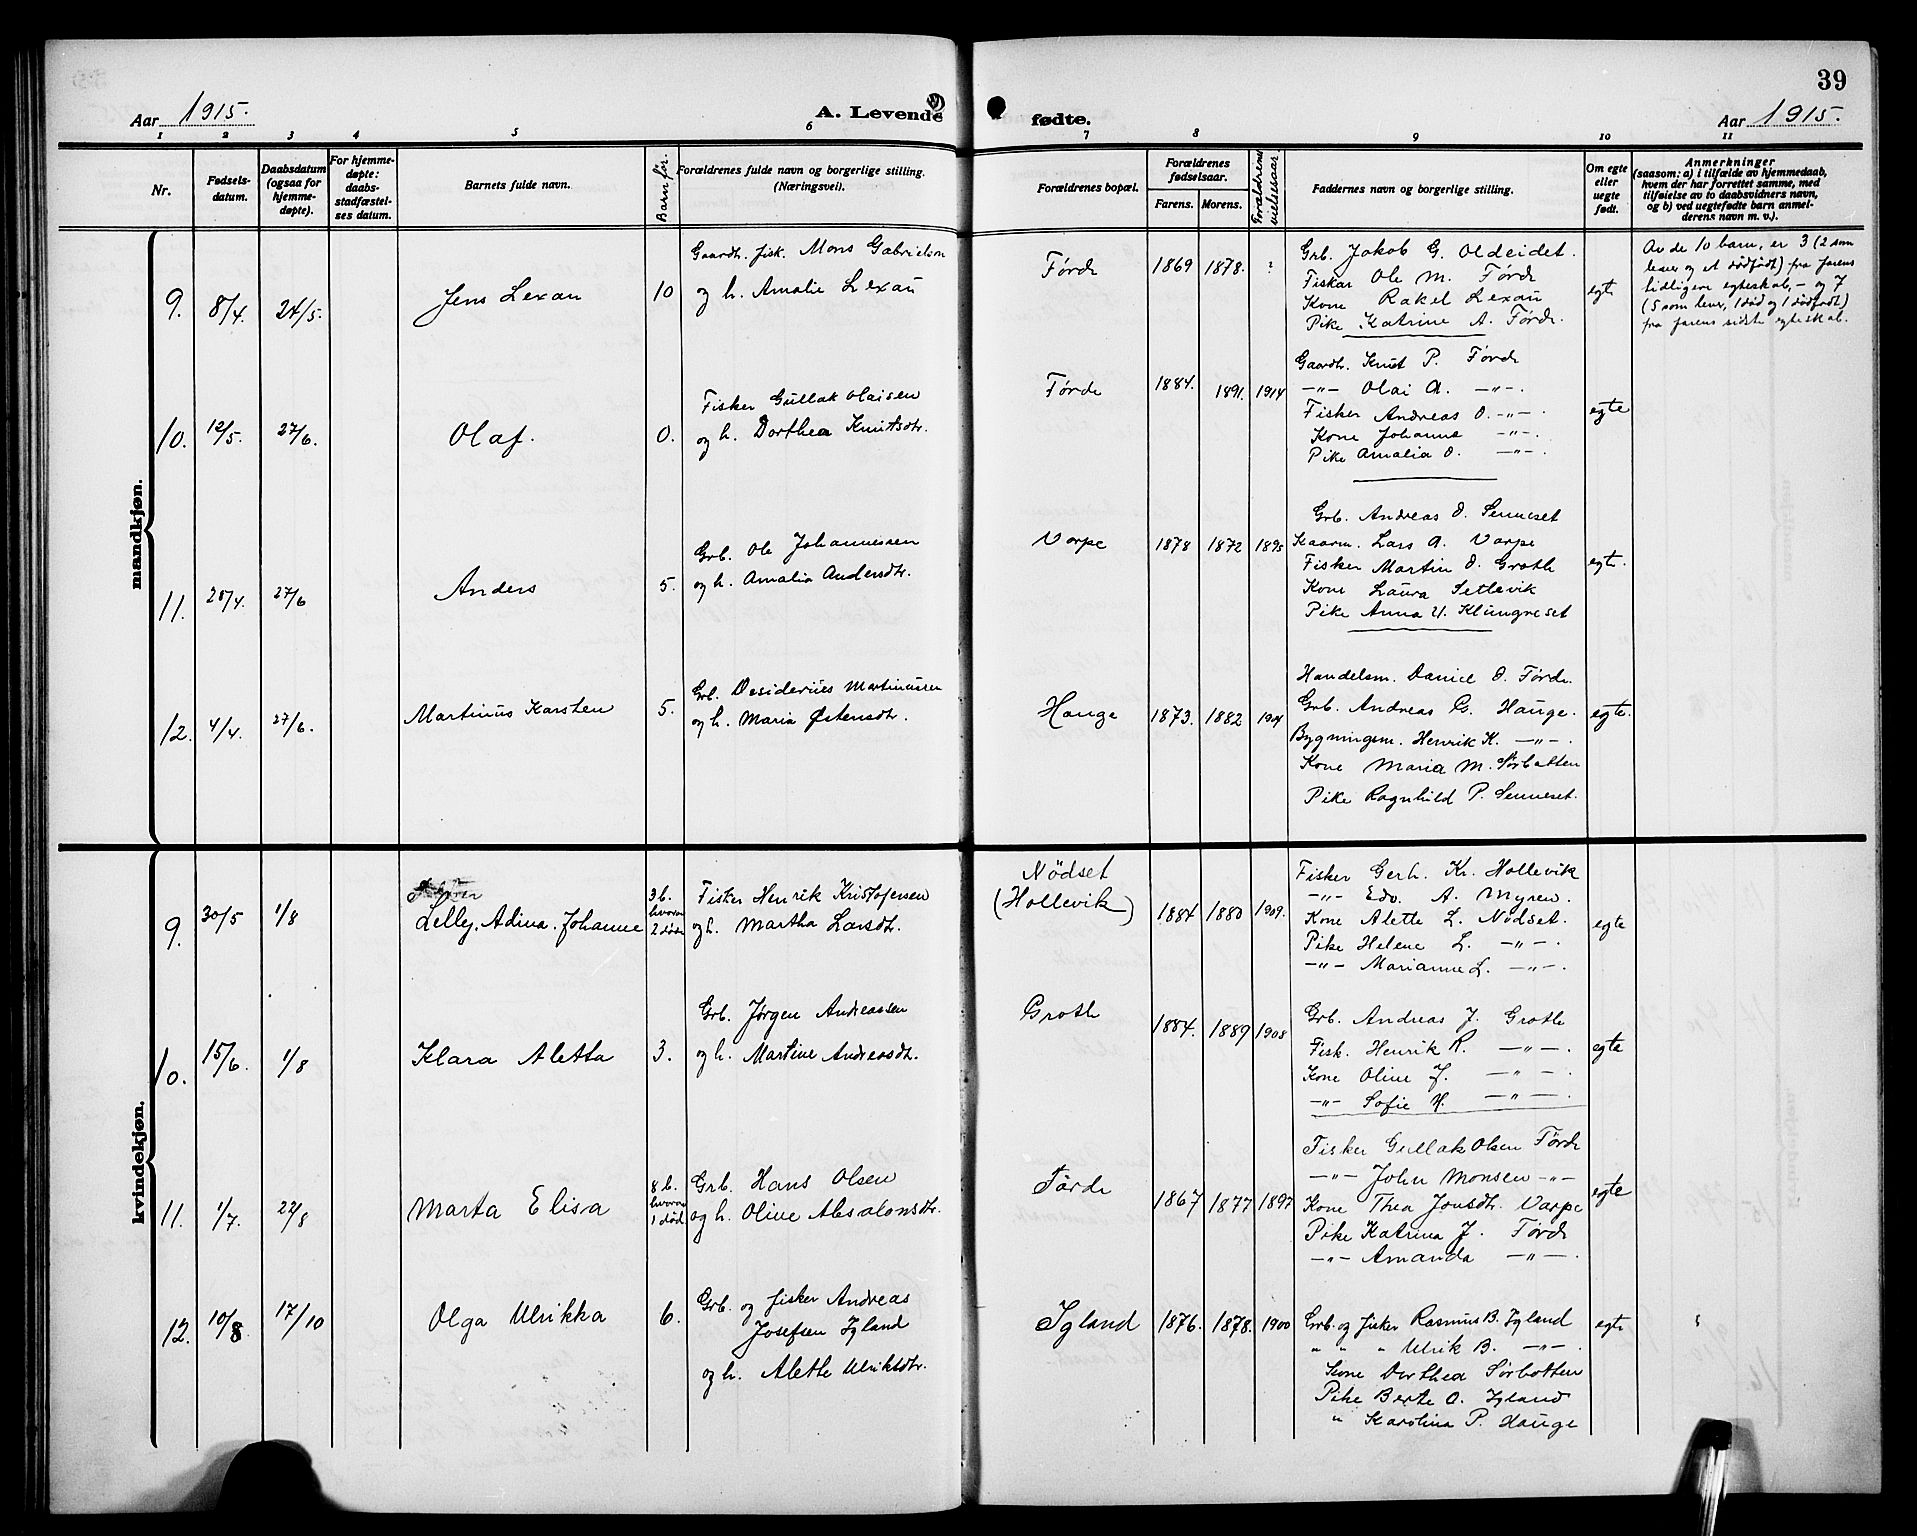 39
Aar 1915. A. Levende fødte. Aar 1915.
1 2 3 4 5 6 7 8 9 10 11
Nr.
Fødsels-
datum.
Daabsdatum
(ogsaa for
hjemme-
døpte).
For hjemme-
døpte:
daabs-
stadfæstel-
ses datum.
Barnets fulde navn.
Barnfør.
Forældrenes fulde navn og borgerlige stilling.
(Næringsvei).
Forældrenes bopæl.
Forældrenes
fødselsaar.
Farens. Morens.
Forældrenes
vielsesaar.
Faddernes navn og borgerlige stilling.
Om egte
eller
uegte
født.
Anmerkninger
(saasom: a) i tilfælde av hjemmedaab,
hvem der har forrettet samme, med
tilføielse av to daabsvidners navn,
og b) ved uegtefødte barn anmel-
derens navn m. v.).
mandkjøn.
9. 8/4. 24/5. Jens Lexau 10
Gaardb. fisk. Mons Gabrielsen
og h. Amalie Lexau
Førde 1869 1878. ?
Grb. Jakob G. Oldeidet.
Fisker Ole M. Førde
Kone Rakel Lexau
Pike Katrine A. Førde.
egte
Av de 10 barn, er 3 (2 som
lever og et dødfødt) fra farens
tidligere egteskab, - og 7
(5 som lever, 1 død og 1 dødfødt)
fra farens sidste egteskab.
10. 12/5. 27/6. Olaf. 0.
Fisker Gullak Olaisen
og h. Dorthea Knutsdtr.
Førde 1884. 1891. 1914
Gaardb. Knut P. Førde
-"- Olai A. -"-.
Fisker Andreas O. -"-.
Kone Johanne -"-.
Pike Amalia O. -"-.
egte
11. 28/4. 27/6 Anders 5.
Grb. Ole Johannessen
og h. Amalia Andersdtr.
Varpe 1878 1872 1895
Grb. Andreas O. Senneset
Kaarm. Lars A. Varpe
Fisker Martin O. Grotle
Kone Laura Setlevik
Pike Anna U. Klungreset
egte.
12. 4/4. 27/6. Martinus Karsten 5.
Grb. Desiderius Martinussen
og h. Maria Østensdtr.
Hauge 1873. 1882 1904
Handelsm. Daniel O. Førde.
Grb. Andreas G. Hauge.
Bygningsm. Henrik K. -"-.
Kone Maria M. Sørbotten
Pike Ragnhild P. Senneset.
egte.
kvindekjøn.
9. 30/5 1/8
Lelly, Adina. Johanne
3 b.
hvorav
2 døde
Fisker Henrik Kristofersen
og h. Martha Larsdtr.
Nødset
(Hollevik) 1884 1880 1909.
Fisker Gerh. Kr. Hollevik
-"- Edv. A. Myren.
Kone Alette L. Nødset.
Pike Helene L. -"-.
-"- Marianne L. -"-.
egte
10. 15/6. 1/8 Klara Aletta 3.
Grb. Jørgen Andreassen
og h. Martine Andreasdtr.
Grotle 1884. 1889 1908
Grb. Andreas J. Grotle
Fisk. Henrik R. -"-.
Kone Olive J. -"-.
-"- Sofie H. -"-.
egte
11. 1/7. 22/8 Marta Elisa
8 b.
hvorav
1 død.
Grb. Hans Olsen
og h. Olive Absalonsdtr.
Førde 1867 1877 1897
Fisker Gullak Olsen Førde
-"- John Monsen -"-
Kone Thea Jonsdtr. Varpe
Pike Katrina J. Førde
-"- Amanda -"-.
egte
12. 10/8 17/10 Olga Ulrikka 6.
Grb. og fisker Andreas
Josefsen Igland
og h. Alette Ulriksdtr.
Igland 1876. 1878. 1900
Grb. og fisker Rasmus B. Igland
" " " Ulrik B. -"-.
Kone Dorthea Sørbotten
Pike Berte O. Igland
" Karolina P. Hauge
egte